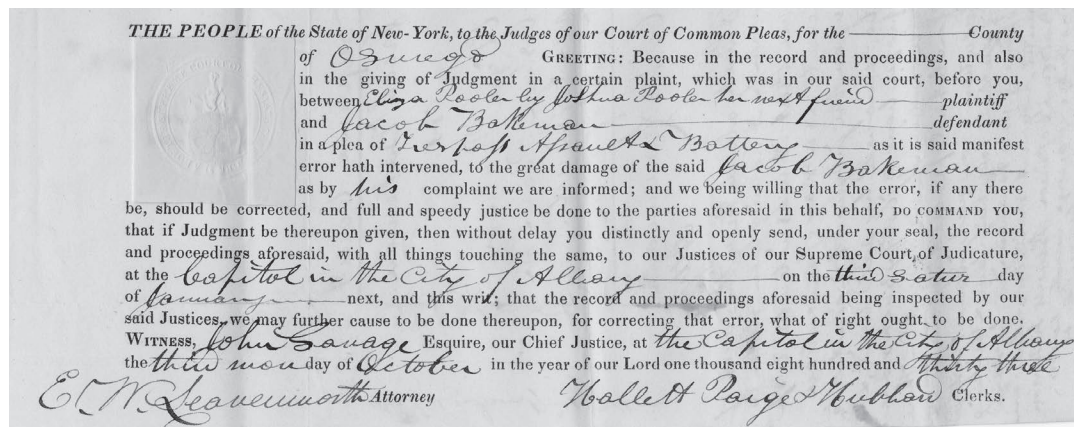 THE PEOPLE of the State of New-York, to the Judges of our Court of Common Pleas, for the County
of Oswego GREETING: Because in the record and proceedings, and also
in the giving of Judgment in a certain plaint, which was in our said court, before you,
between Eliza Pooler by Joshua Pooler her next friend plaintiff
and Jacob Bakeman defendant
in a plea of Trespass Assault & Battery as it is said manifest
error hath intervened, to the great damage of the said Jacob Bakeman
as by his complaint we are informed; and we being willing that the error, if any there
be, should be corrected, and full and speedy justice be done to the parties aforesaid in this behalf, DO COMMAND YOU,
that if Judgment be thereupon given, then without delay you distinctly and openly send, under your seal, the record
and proceedings aforesaid, with all things touching the same, to our Justices of our Supreme Court of Judicature,
at the Capitol in the City of Albany on the third Satur day
of January next, and this writ; that the record and proceedings aforesaid being inspected by our
said Justices, we may further cause to be done thereupon, for correcting that error, what of right ought to be done.
WITNESS, John Savage Esquire, our Chief Justice, at the Capitol in the City of Albany
the third mon day of October in the year of our Lord one thousand eight hundred and thirty three
E. W. Leavenworth Attorney Hallett Paige & Hubbard Clerks.